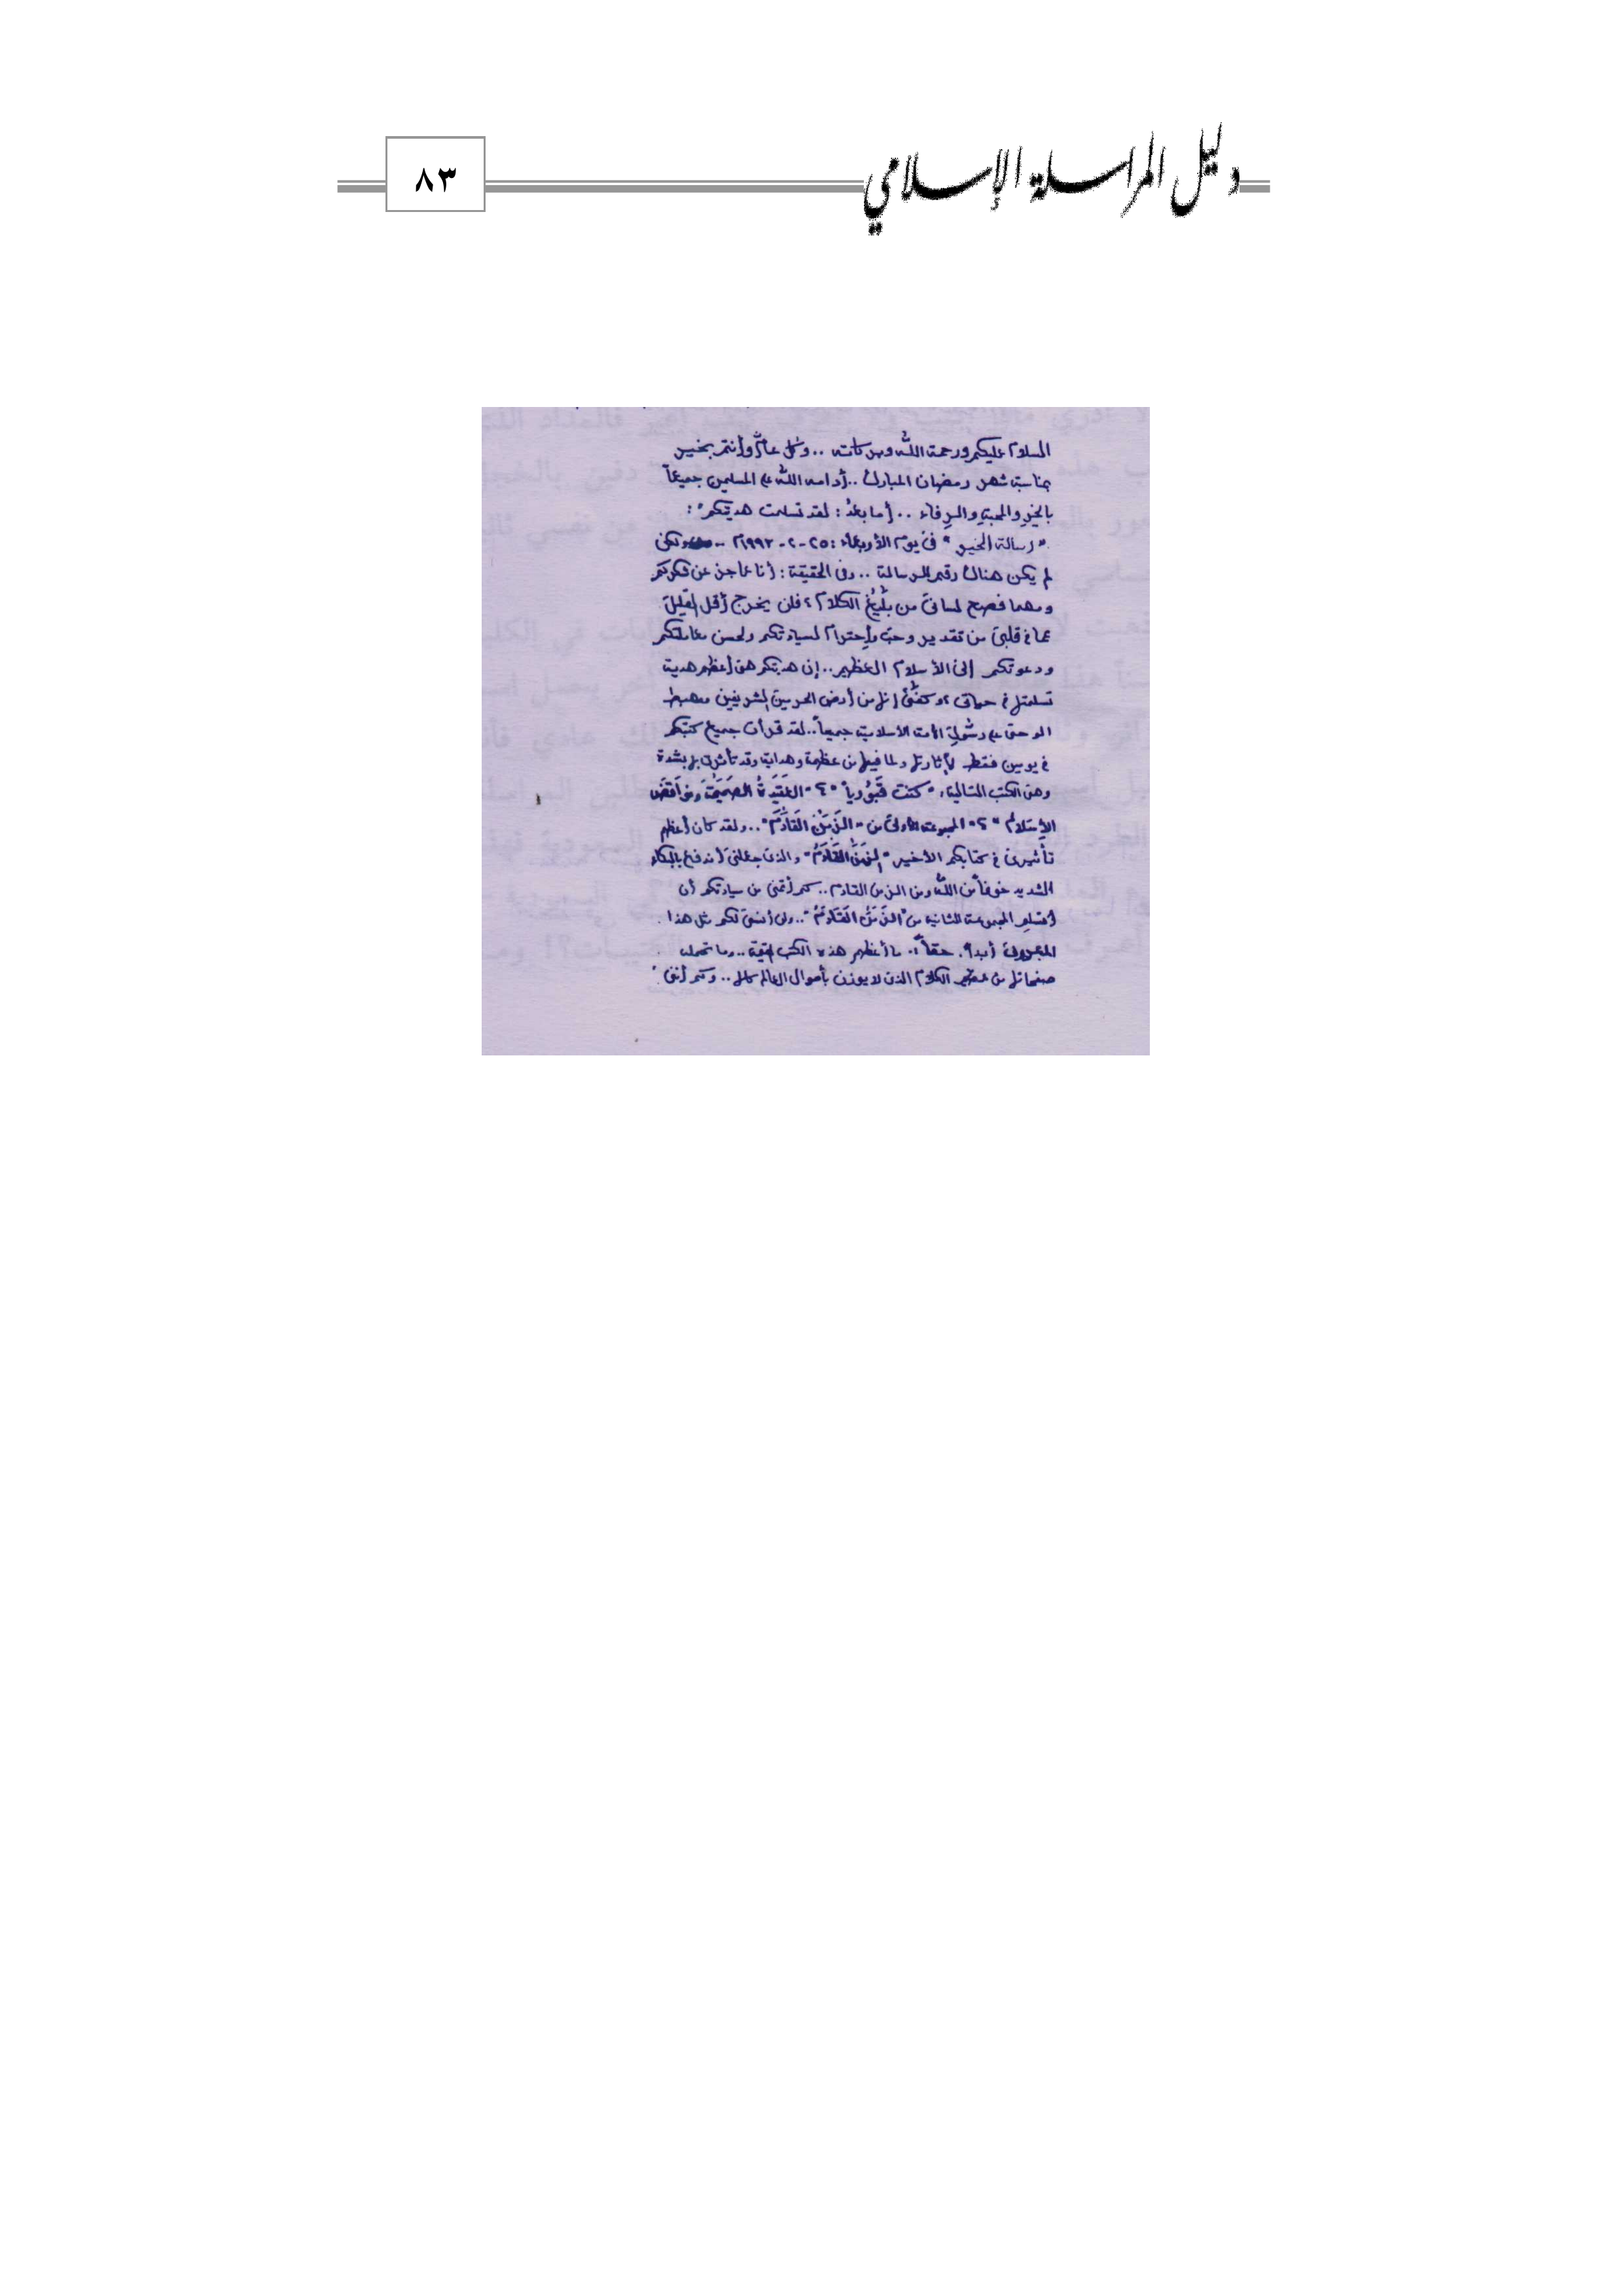 دليل المراسلة الإسلامي
٨٣
السلام عليكم ورحمة الله وبركاته .. وكل عام وأنتم بخير
بمناسبة شهر رمضان المبارك .. أدامه الله على المسلمين جميعاً
بالخير والمحبة والرفاء .. أما بعد: لقد تسلمت هديتكم:
"رسالة الخير" في يوم الأربعاء: ٢٥-٢-١٩٩٢م .. ولكن
لم يكن هناك رقم الرسالة .. وفي الحقيقة: أنا عاجز عن شكركم
ومهما فصح لساني من بليغ الكلام، فلن يخرج أقل القليل
عما في قلبي من تقدير وحب وإحترام لسيادتكم ولحسن معاملتكم
ودعوتكم إلى الأسلام العظيم .. إن هديتكم هي أعظم هدية
تسلمتها في حياتي، وكفى إنها من أرض الحرمين الشريفين ومهبط
الوحي على رسول الأمة الأسلامية جميعاً .. لقد قرأت جميع كتبكم
في يومين فقط لأثارتها ولما فيها من عظمة وهداية وقد تأثرت بها بشدة
وهي الكتب التالية: "كنت قبورياً" ؟ "العقيدة الصحيحة ونواقض
الإسلام" ؟ "المجموعة الأولى من "الزمن القادم" .. ولقد كان أعظم
تأثيري في كتابكم الأخير "الزمن القادم" والذي جعلني أندفع بالبكاء
الشديد خوفاً من الله ومن الزمن القادم .. كم أتمنى من سيادتكم أن
أتسلم المجموعة الثانية من "الزمن القادم" .. ولن أنسى لكم مثل هذا
أبداً. حقاً: ما أعظم هذه الكتب القيمة .. وما تحمله
صفحاتها من الكلام الذي لا يوزن بأموال العالم كلها .. وكم أتمنى